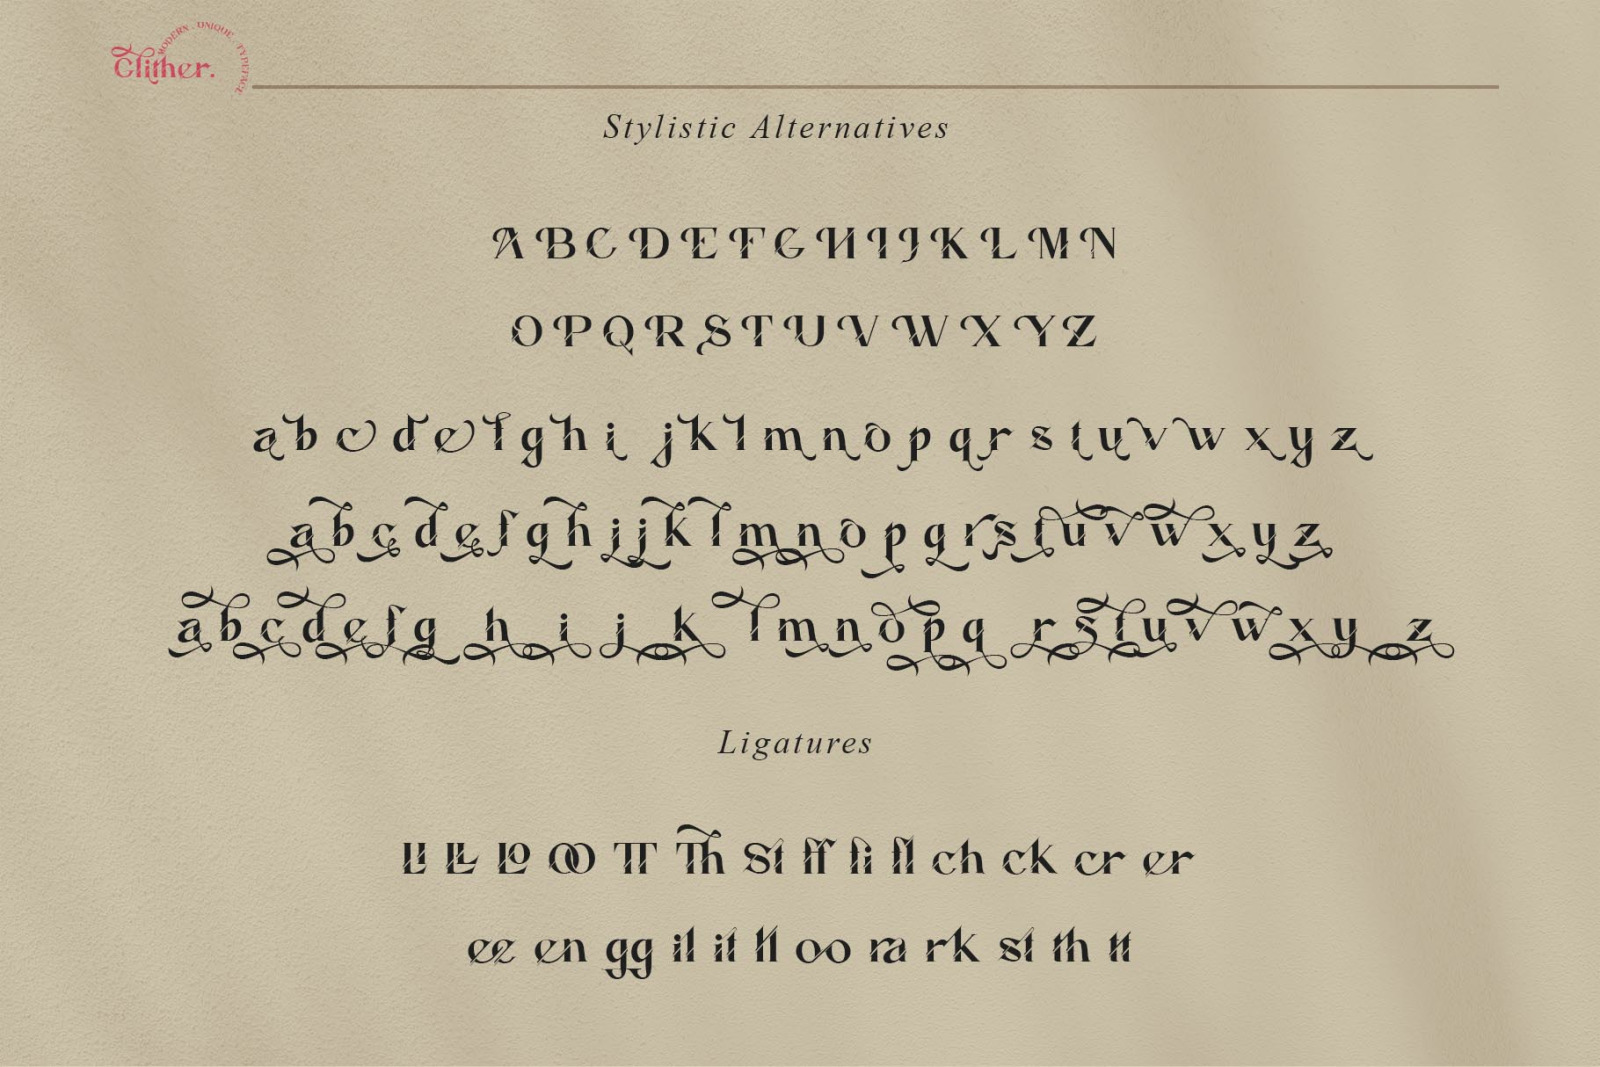 Clither.
MODERN · UNIQUE · TYPEFACE
Stylistic Alternatives
A B C D E F G H I J K L M N
O P Q R S T U V W X Y Z
a b c d e f g h i j k l m n o p q r s t u v w x y z
a b c d e f g h i j k l m n o p q r s t u v w x y z
a b c d e f g h i j k l m n o p q r s t u v w x y z
Ligatures
LI LL LO OO TT Th St ff fi fl ch ck cr er
ee en gg il it ll oo ra rk st th tt